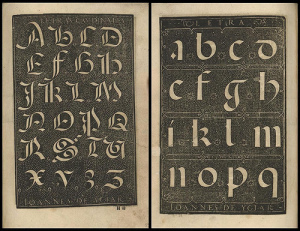 LETRAS
A B C D
E F G H
I K L M
N O P Q
R S T V
X Y Z
IOANNES DE YCIAR
LETRA
a b c d
e f g h
i k l m
n o p q
IOANNES DE YCIAR